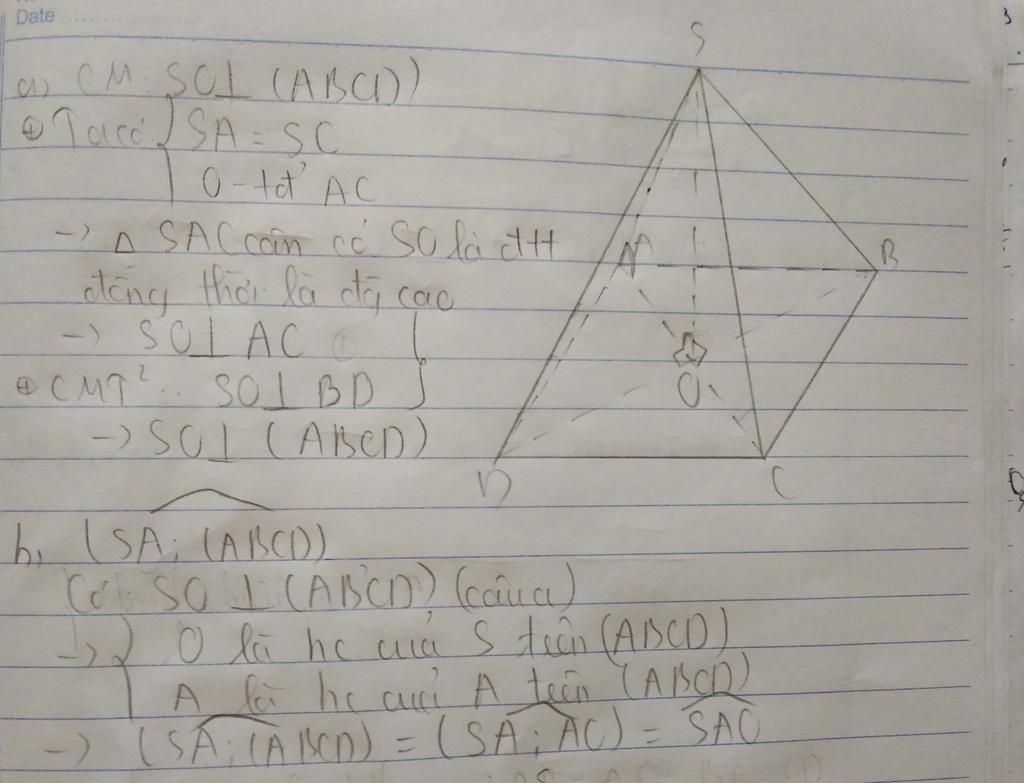 Date
a, CM SO⊥ (ABCD)
⊕ Ta có { SA = SC
O - tđ AC
-> △ SAC cân có SO là đtt
đồng thời là đg cao
-> SO⊥ AC
⊕ CMT²: SO⊥ BD }
-> SO⊥ (ABCD)
S
A
B
O
D
C
b, (SA; (ABCD))
Có SO ⊥ (ABCD) (câu a)
-> { O là hc của S trên (ABCD)
A là hc của A trên (ABCD)
-> (SA; (ABCD) = (SA; AO) = SAO